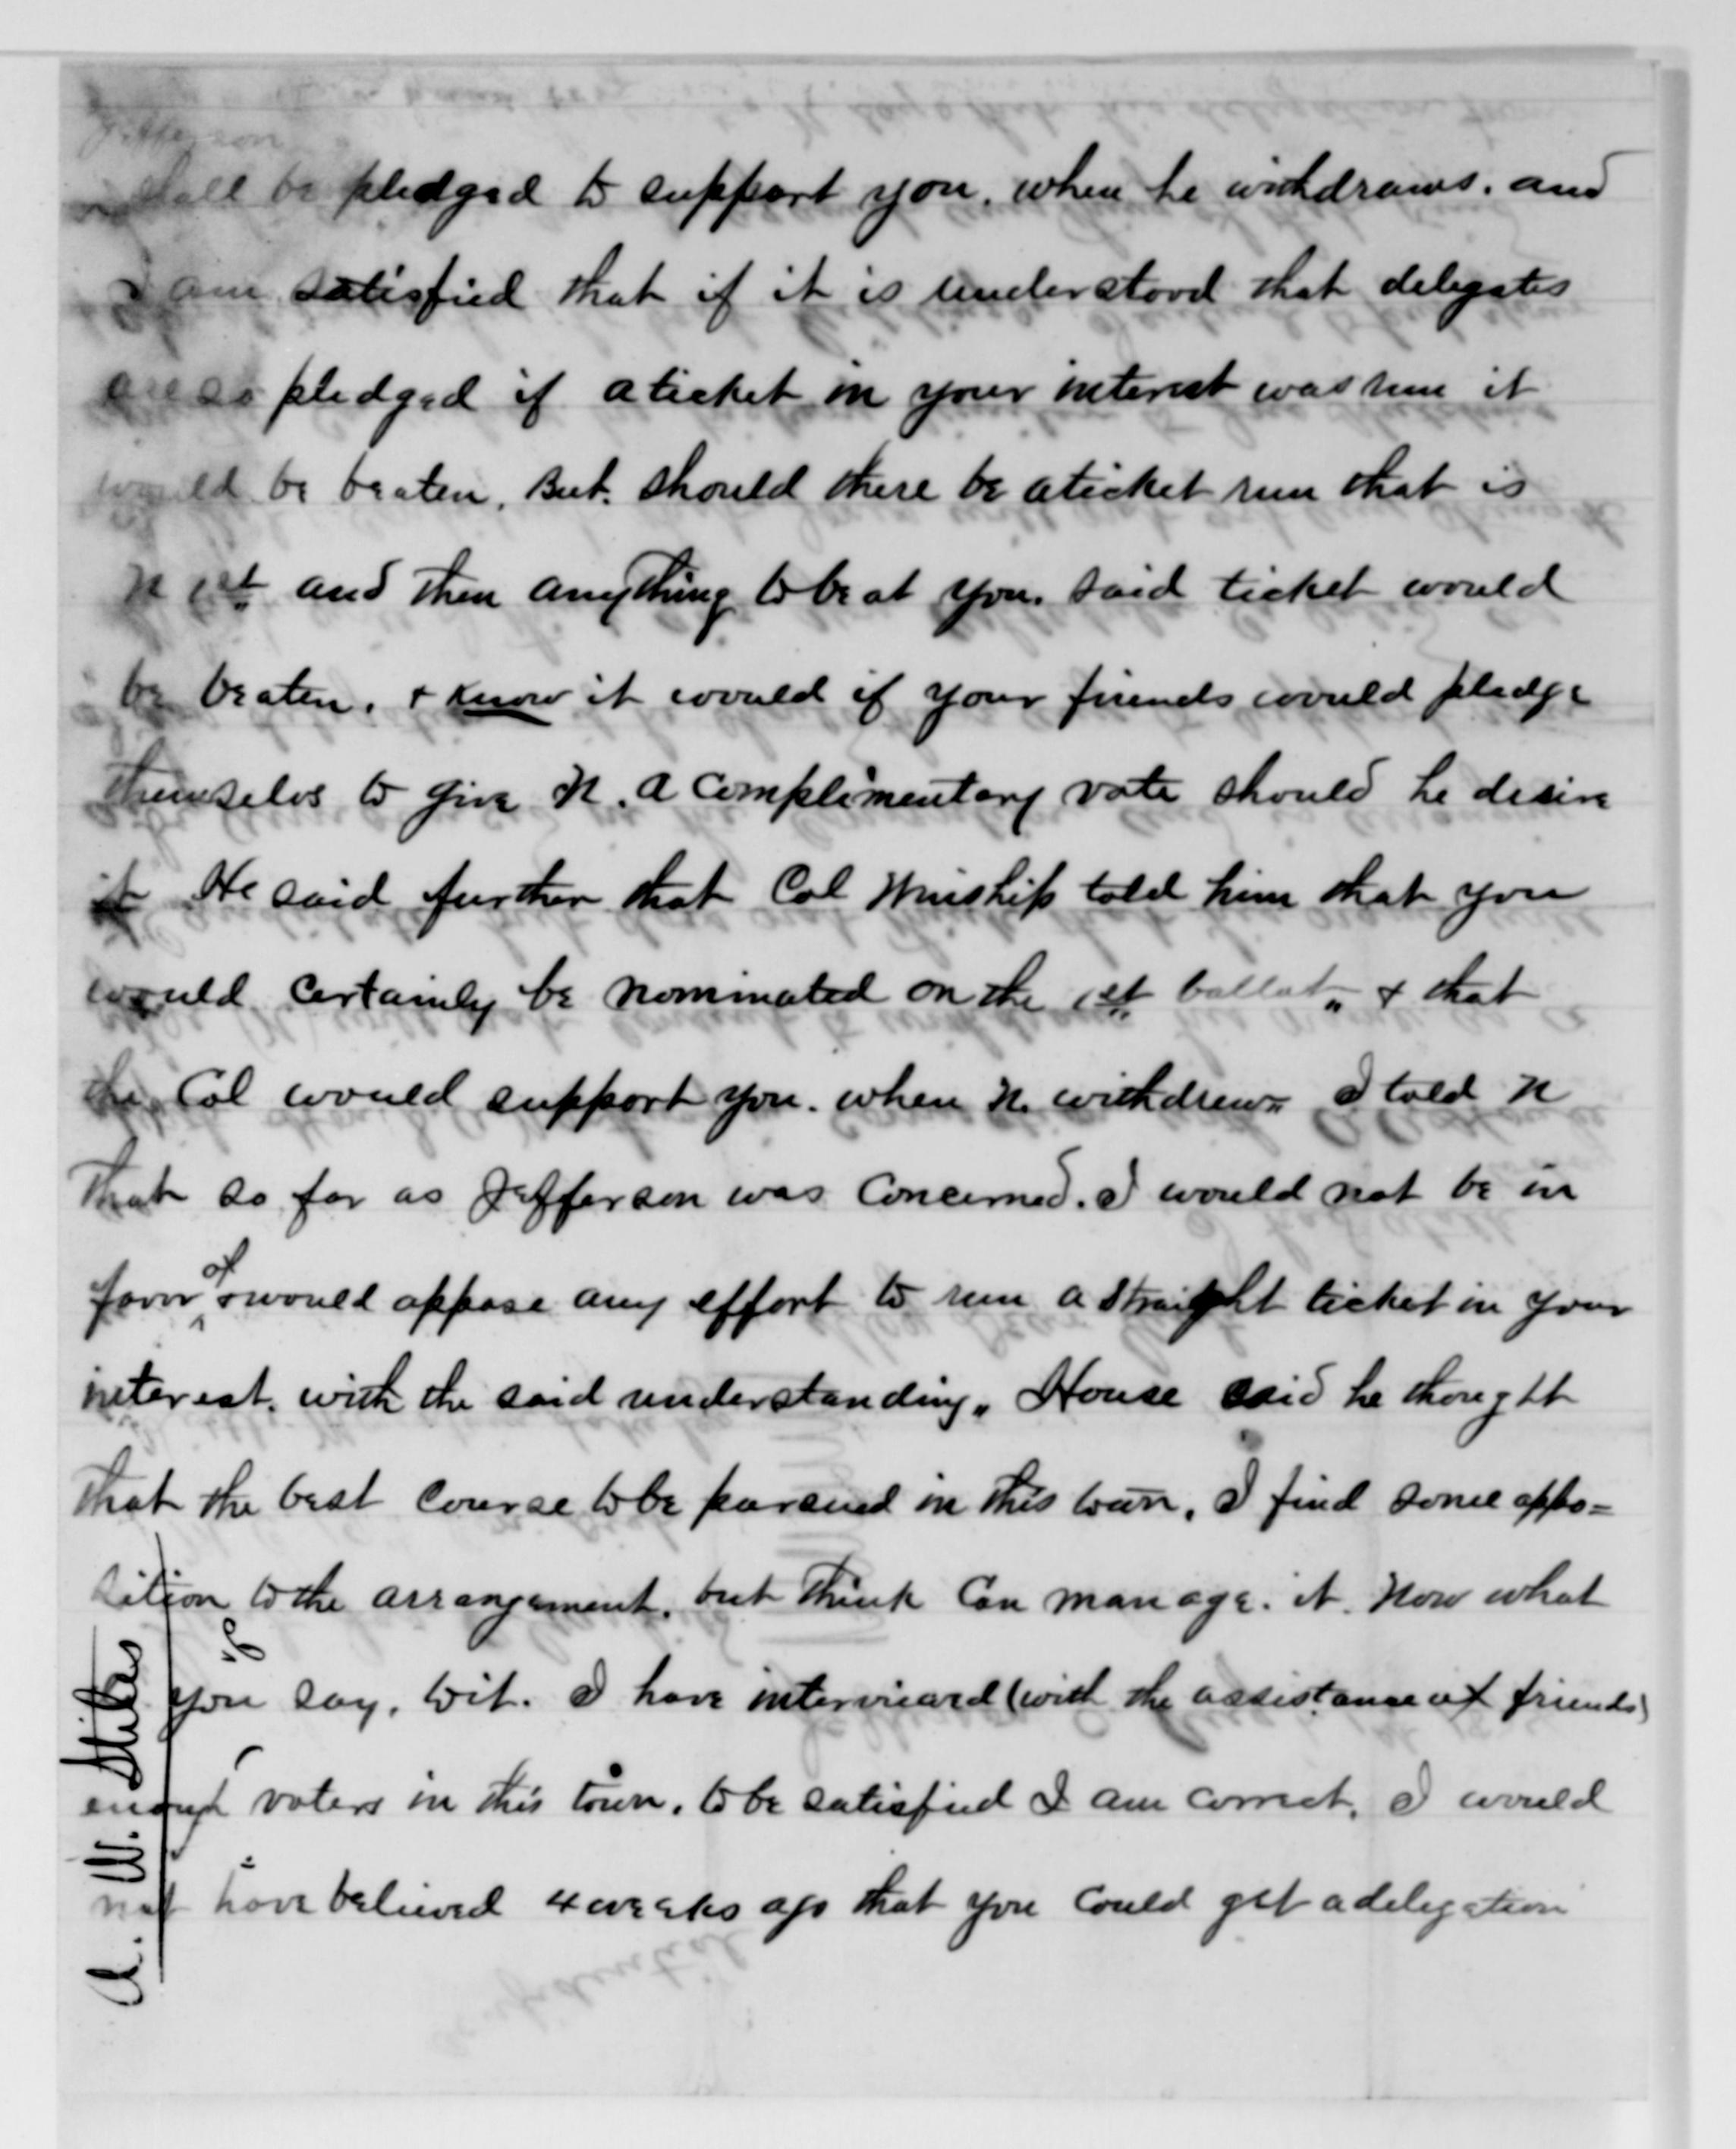 Jefferson
shall be pledged to support you, when he withdraws. and
I am satisfied that if it is understood that delegates
are so pledged if a ticket in your interest was run it
would be beaten, But. should there be a ticket run that is
N 1st and then anything to beat you. said ticket would
be beaten, + know it would if your friends would pledge
themselvs to give N. a complimentary vote should he desire
it He said further that Col Winship told him that you
would certainly be nominated on the 1st ballot„ + that
the Col would support you. when N. withdrew„ I told N
that so far as Jefferson was concerned. I would not be in
favor of + would oppose any effort to run a straight ticket in your
interest, with the said understanding„ House said he thought
that the best course to be pursued in this town, I find some oppo=
sition to the arrangement, but think can manage. it. Now what
you say, to it. I have interviewed (with the assistance of friends)
enough voters in this town, to be satisfied I am correct, I would
not have believed 4 weeks ago that you could get a delegation
A. W. Stiles